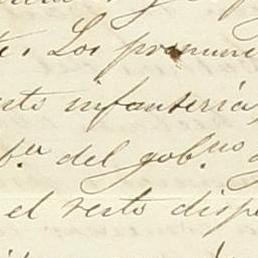 te. Los pronunc
esto infanteria,
fª del gobno
el resto disp